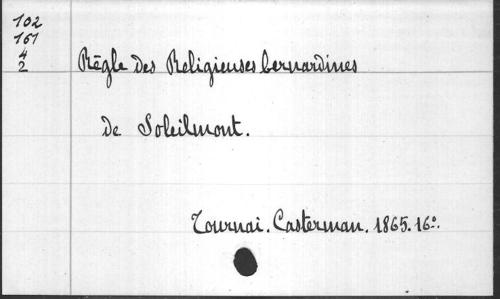 102
161
4
2
Règle des Religieuses bernardines
de Soleilmont.
Tournai. Casterman. 1865. 16º.